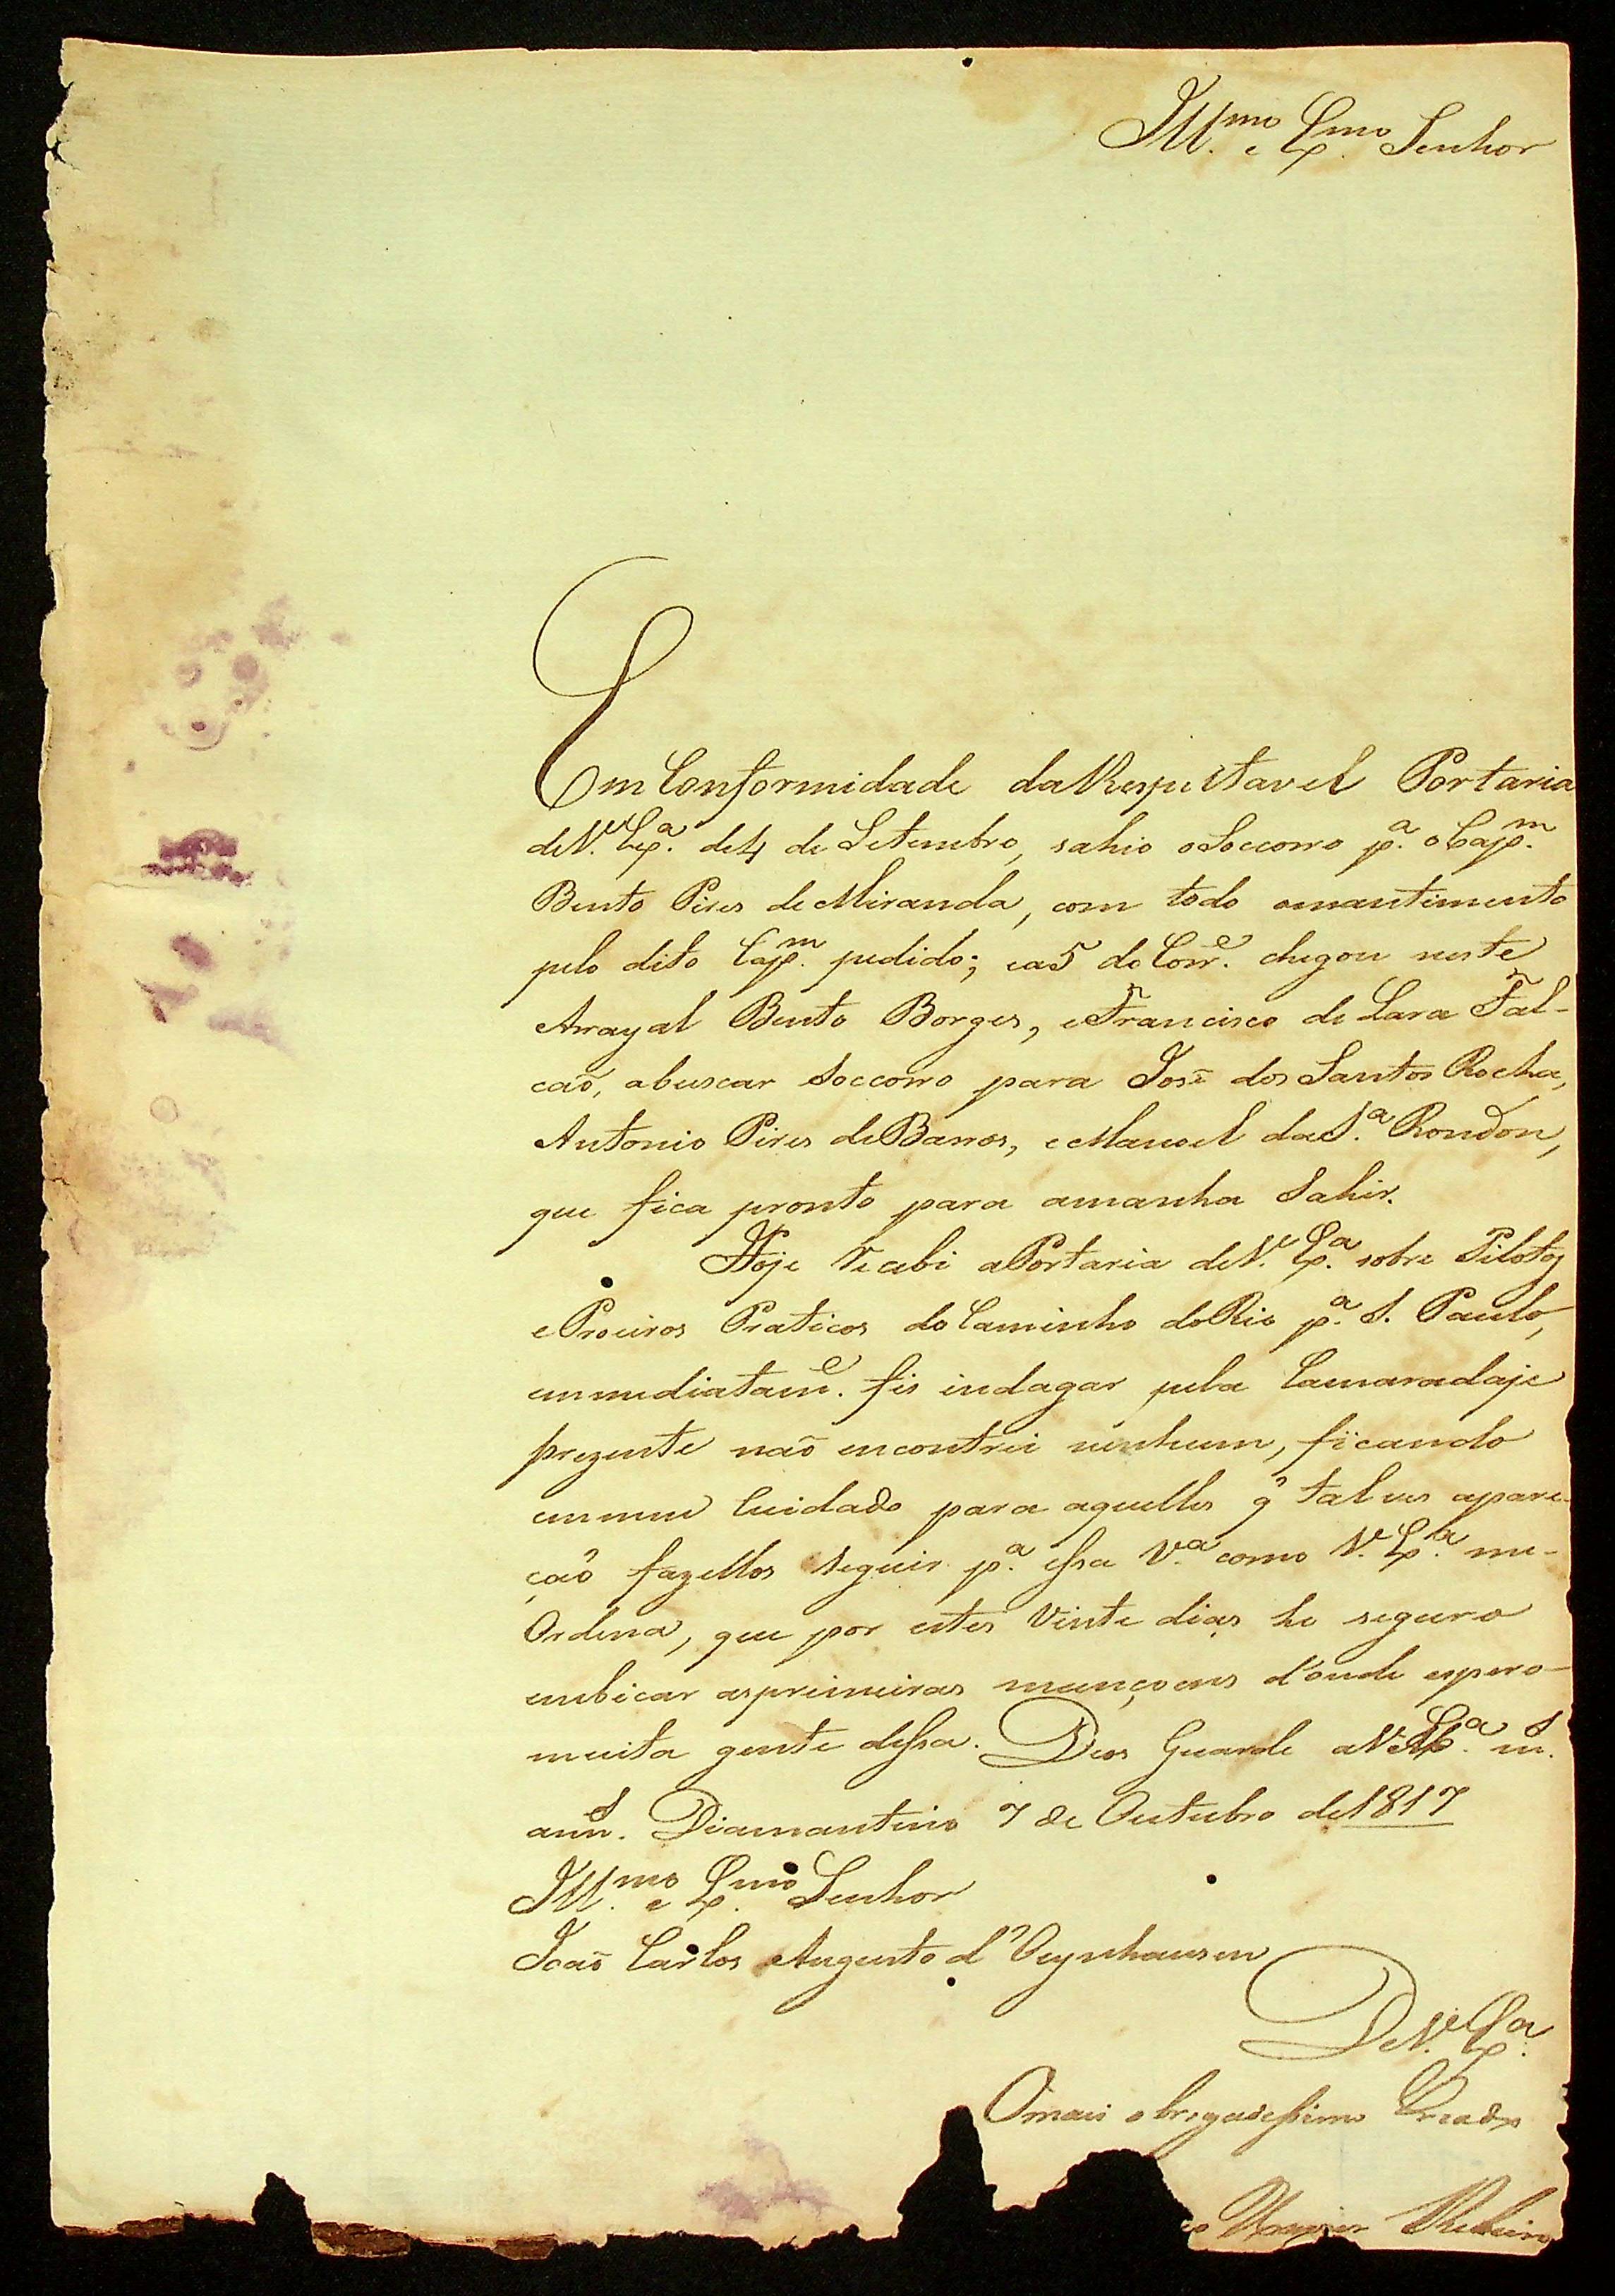 Ill.mo e Ex.mo Senhor
Em Conformidade da Respeitavel Portaria
de V. Ex.a de 4 de Setembro, sahio o Soccorro p.a o Cap.m
Bento Pires de Miranda, com todo omantimento
pelo dito Cap.m pedido; ea5 do Corr.e chegou neste
Arrayal Bento Borges, e Francisco de Lara Fal-
caõ, abuscar Soccorro para José dos Santos Rocha,
Antonio Pires de Barros, e Manoel da S.a Rondon,
que fica pronto para amanha Sahir.
Hoje recebi a Portaria de V. Ex.a sobre Pilotos
e Proeiros Praticos do Caminho do Rio p.a S. Paulo,
emmediatam.e fis indagar pela Camaradaje
prezente naõ encontrei nenhum, ficando
emmeu Cuidado para aquelles q̃ talves apare-
çaõ fazellos seguir p.a essa V.a como V. Ex.a me-
Ordena, que por estes Vinte dias he seguro
embicar asprimeiras monçoens d'onde espero
muita gente dessa. Deos Guarde a V. Ex.a m.s
ann.s Diamantino 7 de Outubro de 1817
Ill.mo e Ex.mo Senhor
Joaõ Carlos Augusto d'Oeynhausen
De V. Ex.a
Omais obrigadissimo Creado
co Xavier Ribeiro